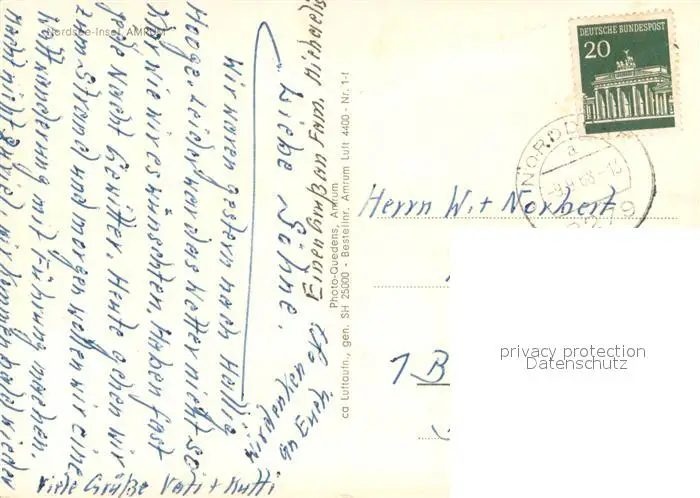 Nordsee-Insel AMRUM
Liebe Söhne,
wir waren gestern nach Hallig
Hooge. Leider war das Wetter nicht so
wie wir es wünschten. Haben fast
jede Nacht Gewitter. Heute gehen wir
zum Strand und morgen wollen wir eine
Wattwanderung mit Führung machen.
wir kommen bald wieder
Viele Grüße Vati + Mutti
Wir denken oft
an Euch.
Einen Gruß an Fam. Michaelis
Photo-Quedens, Amrum
ca Luftaufn., gen. SH 25000 - Bestellnr. Amrum Luft 4400 - Nr. 1-f
DEUTSCHE BUNDESPOST
20
NORDD
a
2279
Herrn W. + Norbert
1 B
privacy protection
Datenschutz